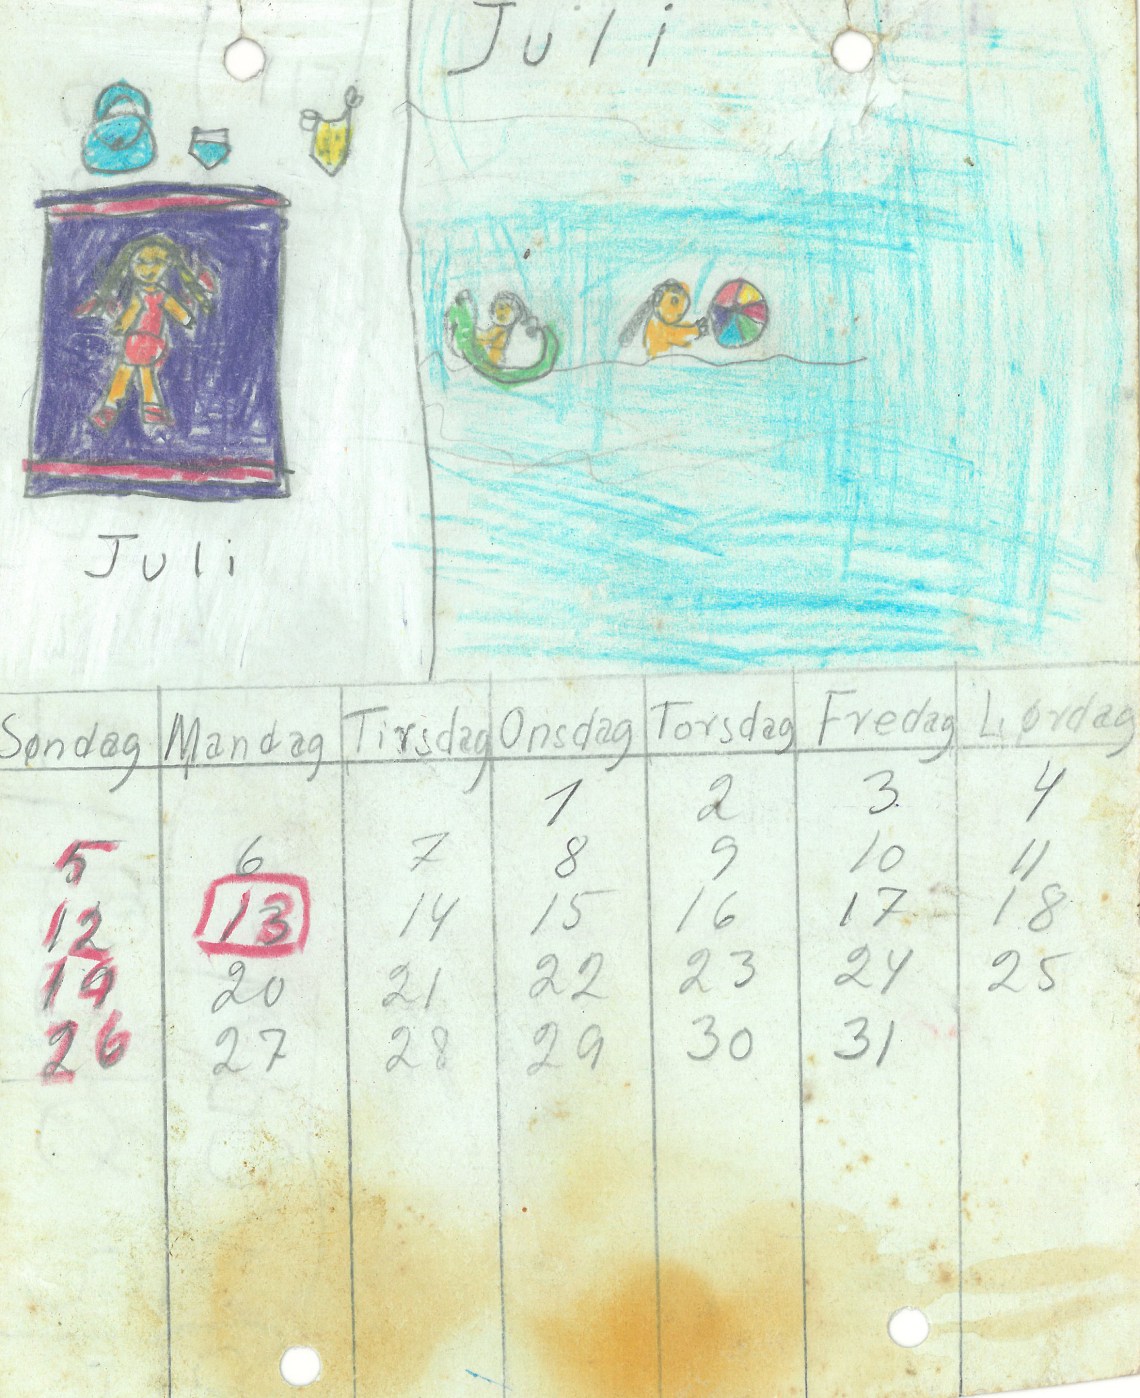 Juli
Juli
Søndag Mandag Tirsdag Onsdag Torsdag Fredag Lørdag
1 2 3 4
5 6 7 8 9 10 11
12 13 14 15 16 17 18
19 20 21 22 23 24 25
26 27 28 29 30 31